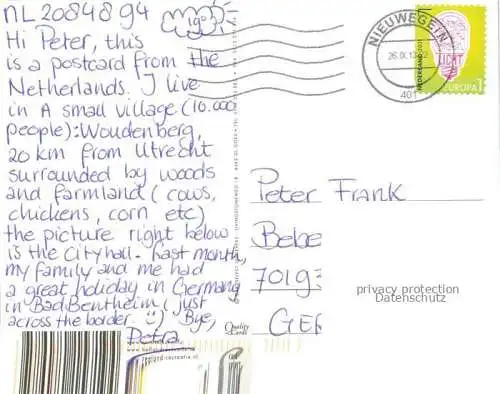 NL 2084894
19°
Hi Peter, this
is a postcard from the
Netherlands. I live
in A small village (10.000
people): Woudenberg,
20 km from Utrecht
surrounded by woods
and farmland (cows,
chickens, corn etc)
the picture right below
is the cityhall. Last month,
my family and me had
a great holiday in Germany
in Bad Bentheim (just
across the border. :) Bye,
Petra
NIEUWEGEIN
401
LICHT
NEDERLAND
EUROPA 1
Peter Frank
7019
GE
privacy protection
Datenschutz
Quality
Cards